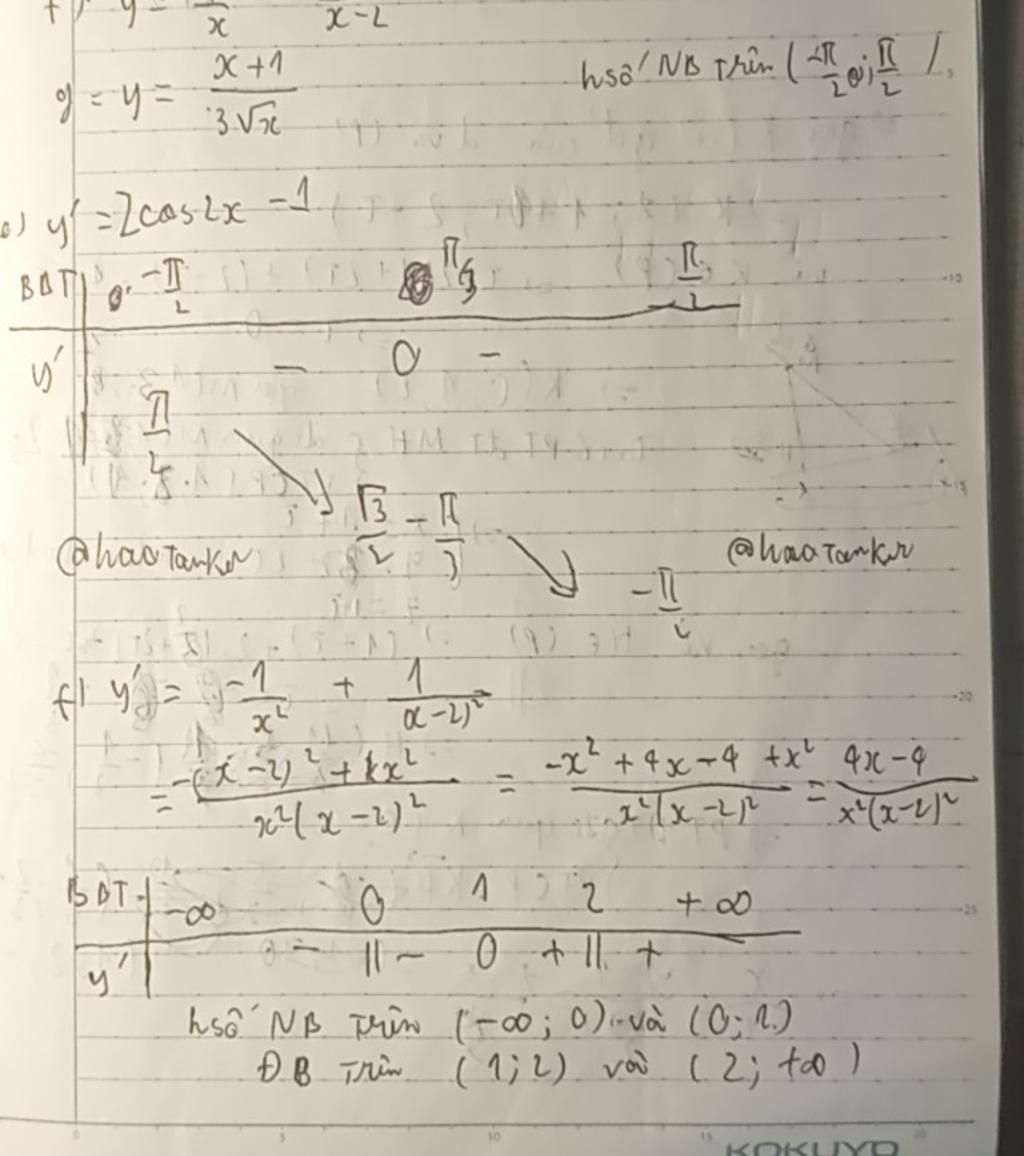 f) y = /x x-2
hsố NB trên (-π/2; π/2)
g = y = x+1/3√x
e) y' = 2cos2x - 1
BBT -π/2 π/3 π/2
y' - 0 -
π/2
√3/2 - π/3
@haoTanker @haoTanker
-π/2
f) y' = -1/x² + 1/(x-2)²
= -(x-2)² + x²/x²(x-2)² = -x² + 4x - 4 + x²/x²(x-2)² = 4x-4/x²(x-2)²
BBT -∞ 0 1 2 +∞
y' - || - 0 + || +
hsố NB trên (-∞; 0) và (0; 1)
ĐB trên (1; 2) và (2; +∞)
0 5 10 15 20
KOKUYO